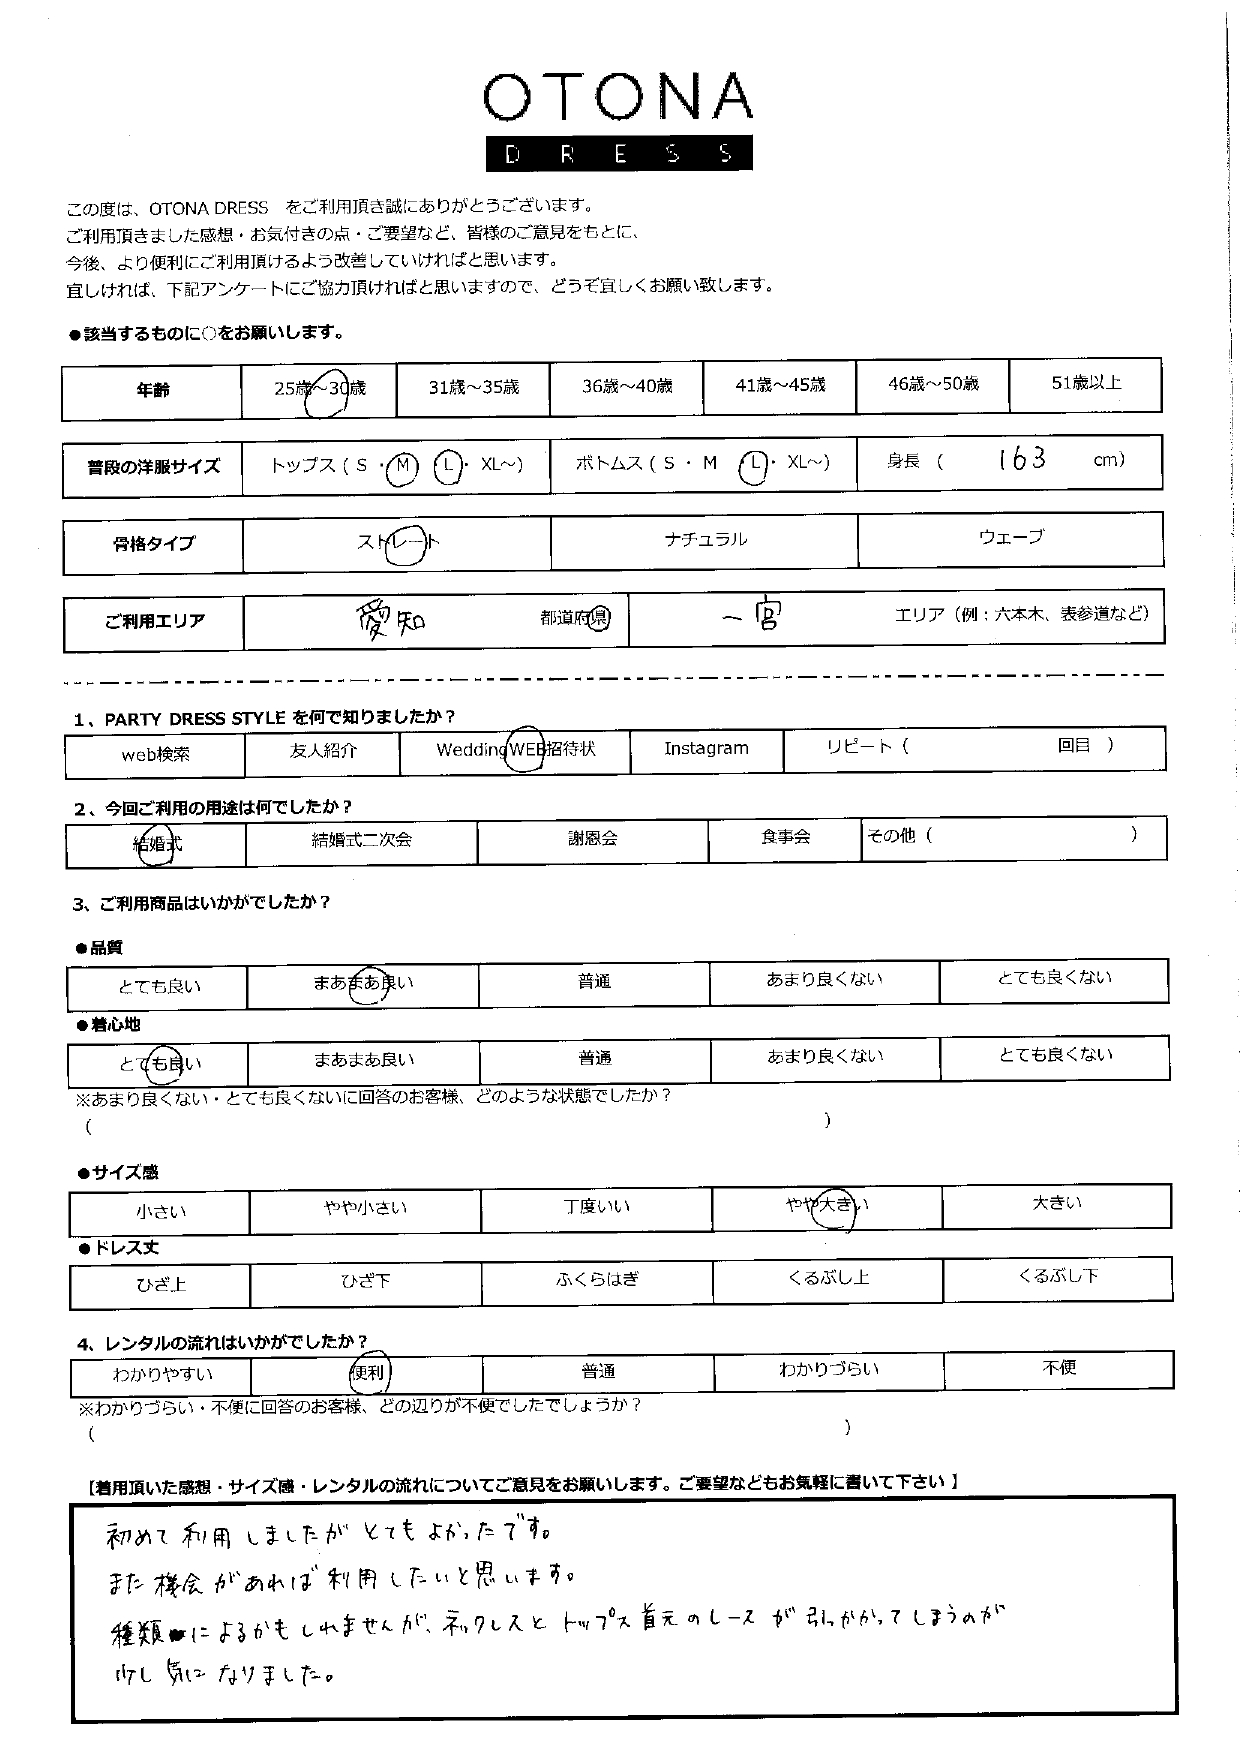 OTONA
DRESS
この度は、OTONA DRESS　をご利用頂き誠にありがとうございます。
ご利用頂きました感想・お気付きの点・ご要望など、皆様のご意見をもとに、
今後、より便利にご利用頂けるよう改善していければと思います。
宜しければ、下記アンケートにご協力頂ければと思いますので、どうぞ宜しくお願い致します。
●該当するものに○をお願いします。
年齢 25歳～30歳 31歳～35歳 36歳～40歳 41歳～45歳 46歳～50歳 51歳以上
普段の洋服サイズ トップス（ S ・ M L ・ XL～） ボトムス（ S ・ M L ・ XL～） 身長 （ 163 cm）
骨格タイプ ストレート ナチュラル ウェーブ
ご利用エリア 愛知 都道府県 一宮 エリア（例：六本木、表参道など）
1、PARTY DRESS STYLE を何で知りましたか？
web検索 友人紹介 WeddingWEB招待状 Instagram リピート（ 回目 ）
2、今回ご利用の用途は何でしたか？
結婚式 結婚式二次会 謝恩会 食事会 その他（ ）
3、ご利用商品はいかがでしたか？
●品質
とても良い まあまあ良い 普通 あまり良くない とても良くない
●着心地
とても良い まあまあ良い 普通 あまり良くない とても良くない
※あまり良くない・とても良くないに回答のお客様、どのような状態でしたか？
（ ）
●サイズ感
小さい やや小さい 丁度いい やや大きい 大きい
●ドレス丈
ひざ上 ひざ下 ふくらはぎ くるぶし上 くるぶし下
4、レンタルの流れはいかがでしたか？
わかりやすい 便利 普通 わかりづらい 不便
※わかりづらい・不便に回答のお客様、どの辺りが不便でしたでしょうか？
（ ）
【着用頂いた感想・サイズ感・レンタルの流れについてご意見をお願いします。ご要望などもお気軽に書いて下さい】
初めて利用しましたがとてもよかったです。
また機会があれば利用したいと思います。
種類によるかもしれませんが、ネックレスとトップス首元のレースが引っかかってしまうのが
少し気になりました。